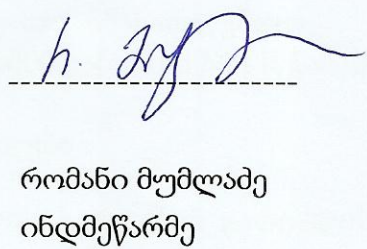 რომანი მუმლაძე
ინდმეწარმე